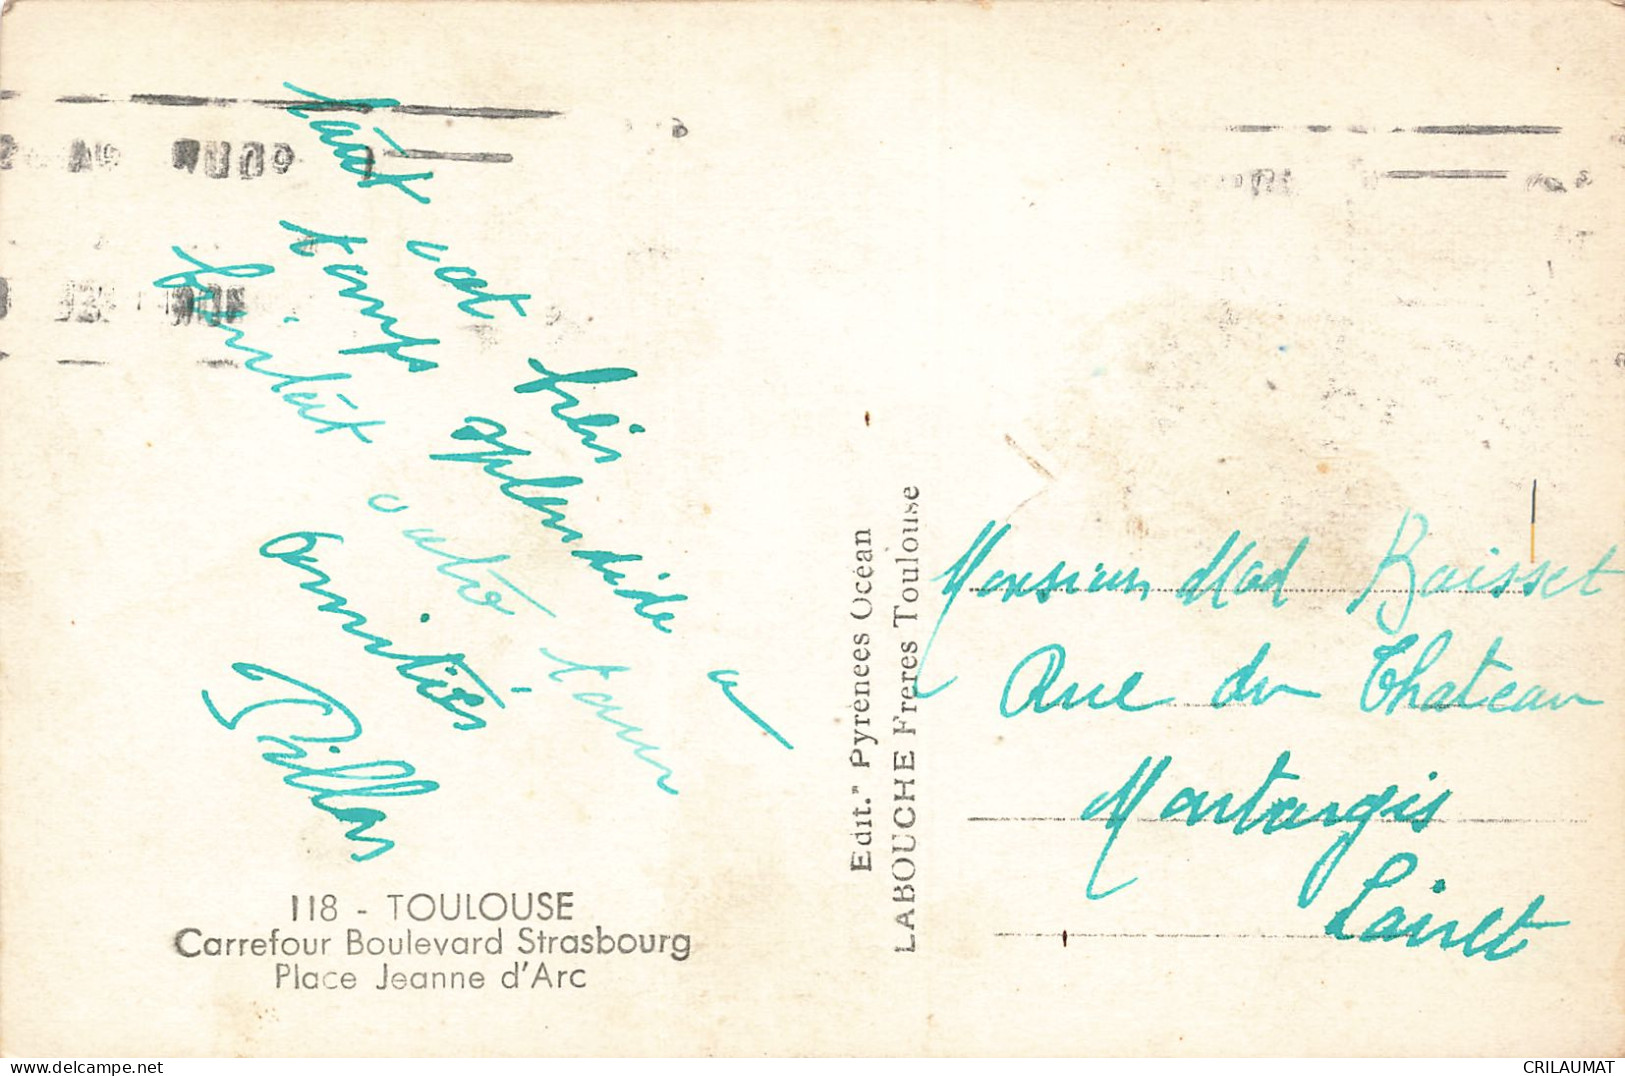 tout est très
temps splendide a
bientôt votre tour
amitiés
118 - TOULOUSE
Carrefour Boulevard Strasbourg
Place Jeanne d'Arc
Edit.ⁿ Pyrénées Océan
LABOUCHE Freres Toulouse
Monsieur Mad Boisset
Rue du Chateau
Montargis
Loiret
CRILAUMAT